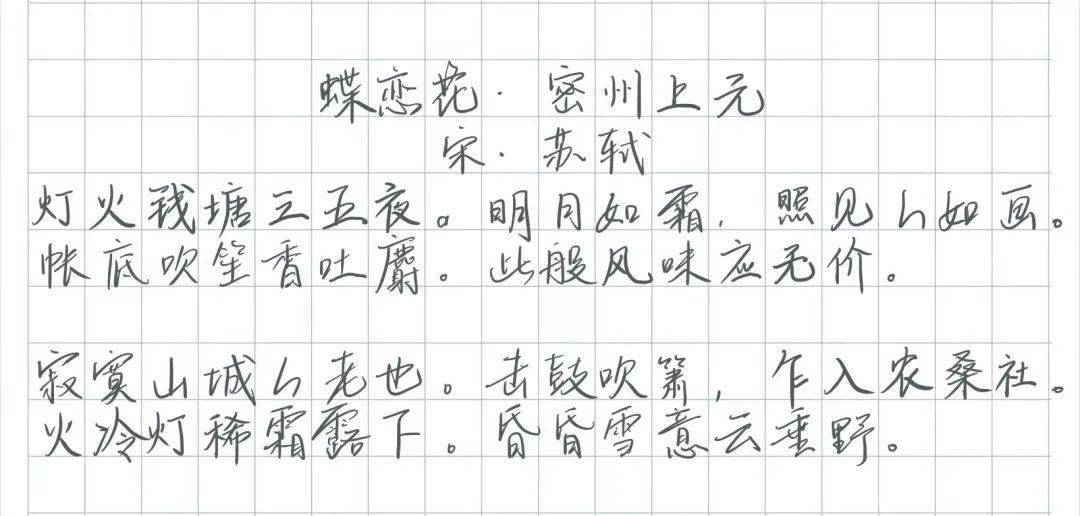 蝶恋花·密州上元
宋·苏轼
灯火钱塘三五夜。明月如霜，照见人如画。
帐底吹笙香吐麝。此般风味应无价。
寂寞山城人老也。击鼓吹箫，乍入农桑社。
火冷灯稀霜露下。昏昏雪意云垂野。